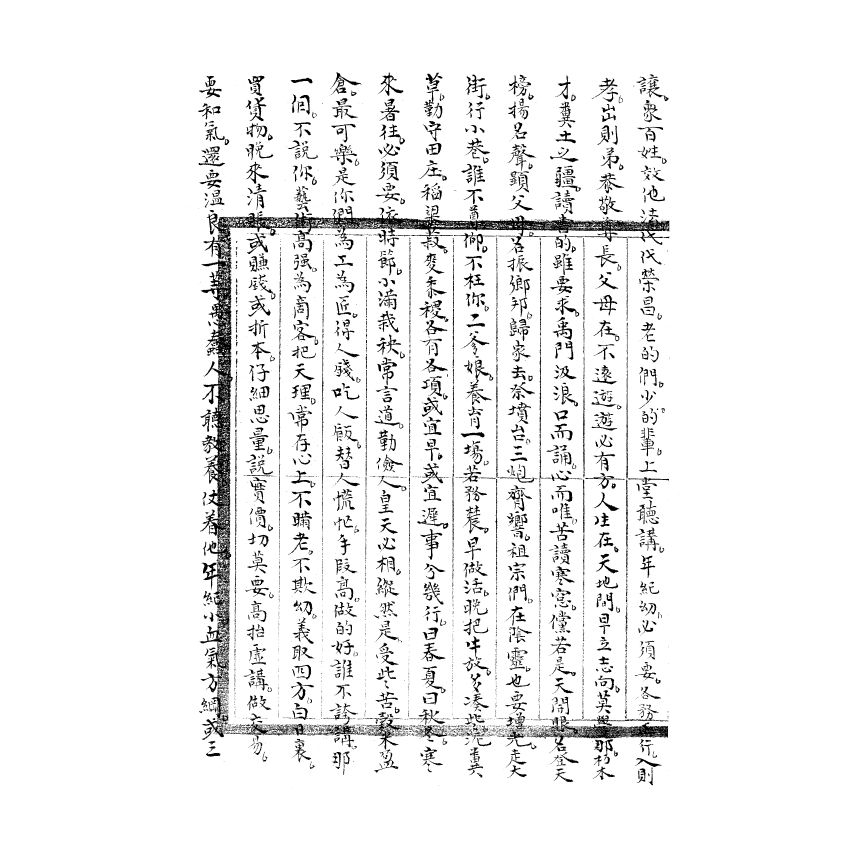 讓。衆百姓。效他清。代代榮昌。老的們。少的輩。上堂聽講。年紀幼。必須要。各務行。入則
孝。出則弟。恭敬尊長。父母在。不遠遊。遊必有方。人生在。天地間。早立志向。莫學那。朽木
才。糞土之疆。讀書的。雖要求。禹門汲浪。口而誦。心而唯。苦讀寒窓。儻若是。天開眼。名登天
榜。揚名聲。顯父母。名振鄉邦。歸家去。祭墳台。三炮齊響。祖宗們。在陰靈。也要增光。走大
街。行小巷。誰不尊仰。不枉你。二爹娘。養育一塲。若務農。早做活。晩把牛放。多湊些。荒糞
草。勤守田庄。稻粱菽。麥黍稷。各有各項。或宜早。或宜遲。事兮幾行。曰春夏。曰秋冬。寒
來暑往。必須要。依時節。小滿栽秧。常言道。勤儉人。皇天必相。縱然是。受此苦。穀米盈
倉。最可樂。是你們。為工為匠。得人錢。吃人飯。替人慌忙。手段高。做的好。誰不誇講。那
一個。不說你。藝術高强。為商客。把天理。常存心上。不瞞老。不欺幼。義取四方。白日裏。
買貨物。晩來清賬。或賺錢。或折本。仔細思量。說實價。切莫要。高抬虛講。做交易。
要和氣。還要溫良。有一等。愚蠢人。不聽敎養。仗着他。年紀小。血氣方綱。或三